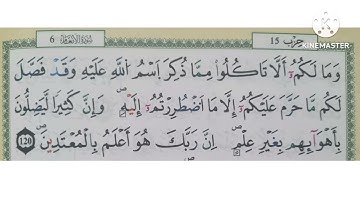 حزب 15 سورة الأنعام 6
KINEMASTER
وَمَا لَكُمُۥٓ أَلَّا تَاكُلُوا۟ مِمَّا ذُكِرَ اَسْمُ اُللَّهِ عَلَيْهِ وَقَدْ فَصَّلَ
لَكُم مَّا حَرَّمَ عَلَيْكُمُۥٓ إِلَّا مَا اَضْطُرِرْتُمُۥٓ إِلَيْهِۖ وَإِنَّ كَثِيراً لَّيَضِلُّونَ
بِأَهْوَآئِهِم بِغَيْرِ عِلْمٍۖ اِنَّ رَبَّكَ هُوَ أَعْلَمُ بِالْمُعْتَدِينَۖ 120